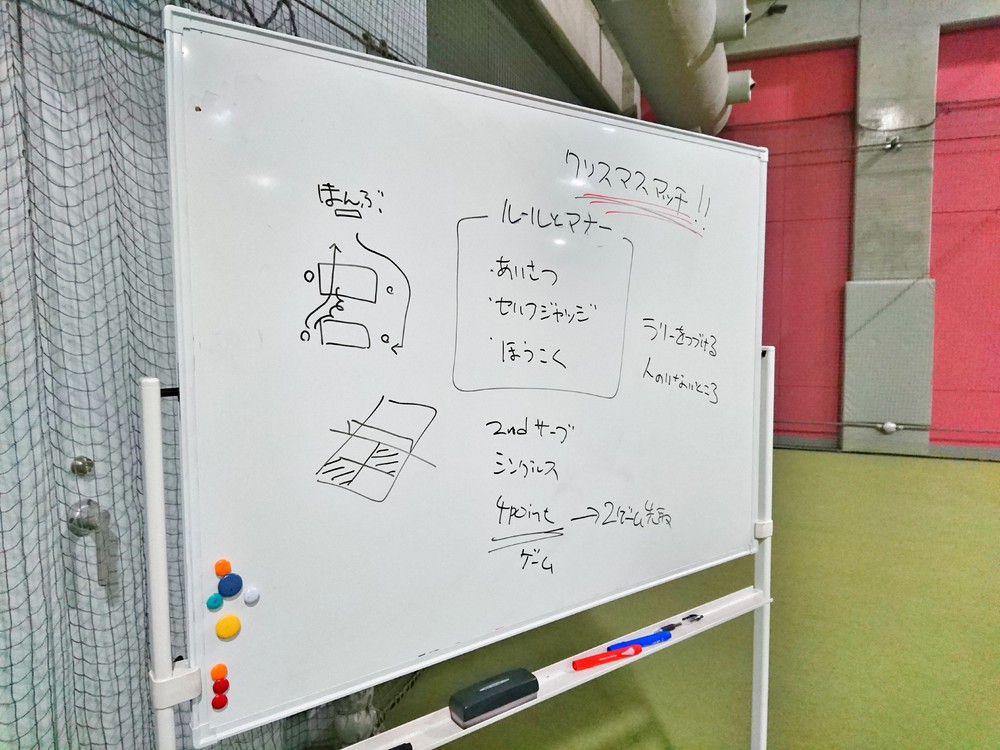 クリスマスマッチ!!
はんぶ:
ルールとマナー
・あいさつ
・セルフジャッジ
・ほうこく
ラリーをつづける
人のいないところ
2ndサーブ
シングルス
4point →2ゲーム先取
ゲーム